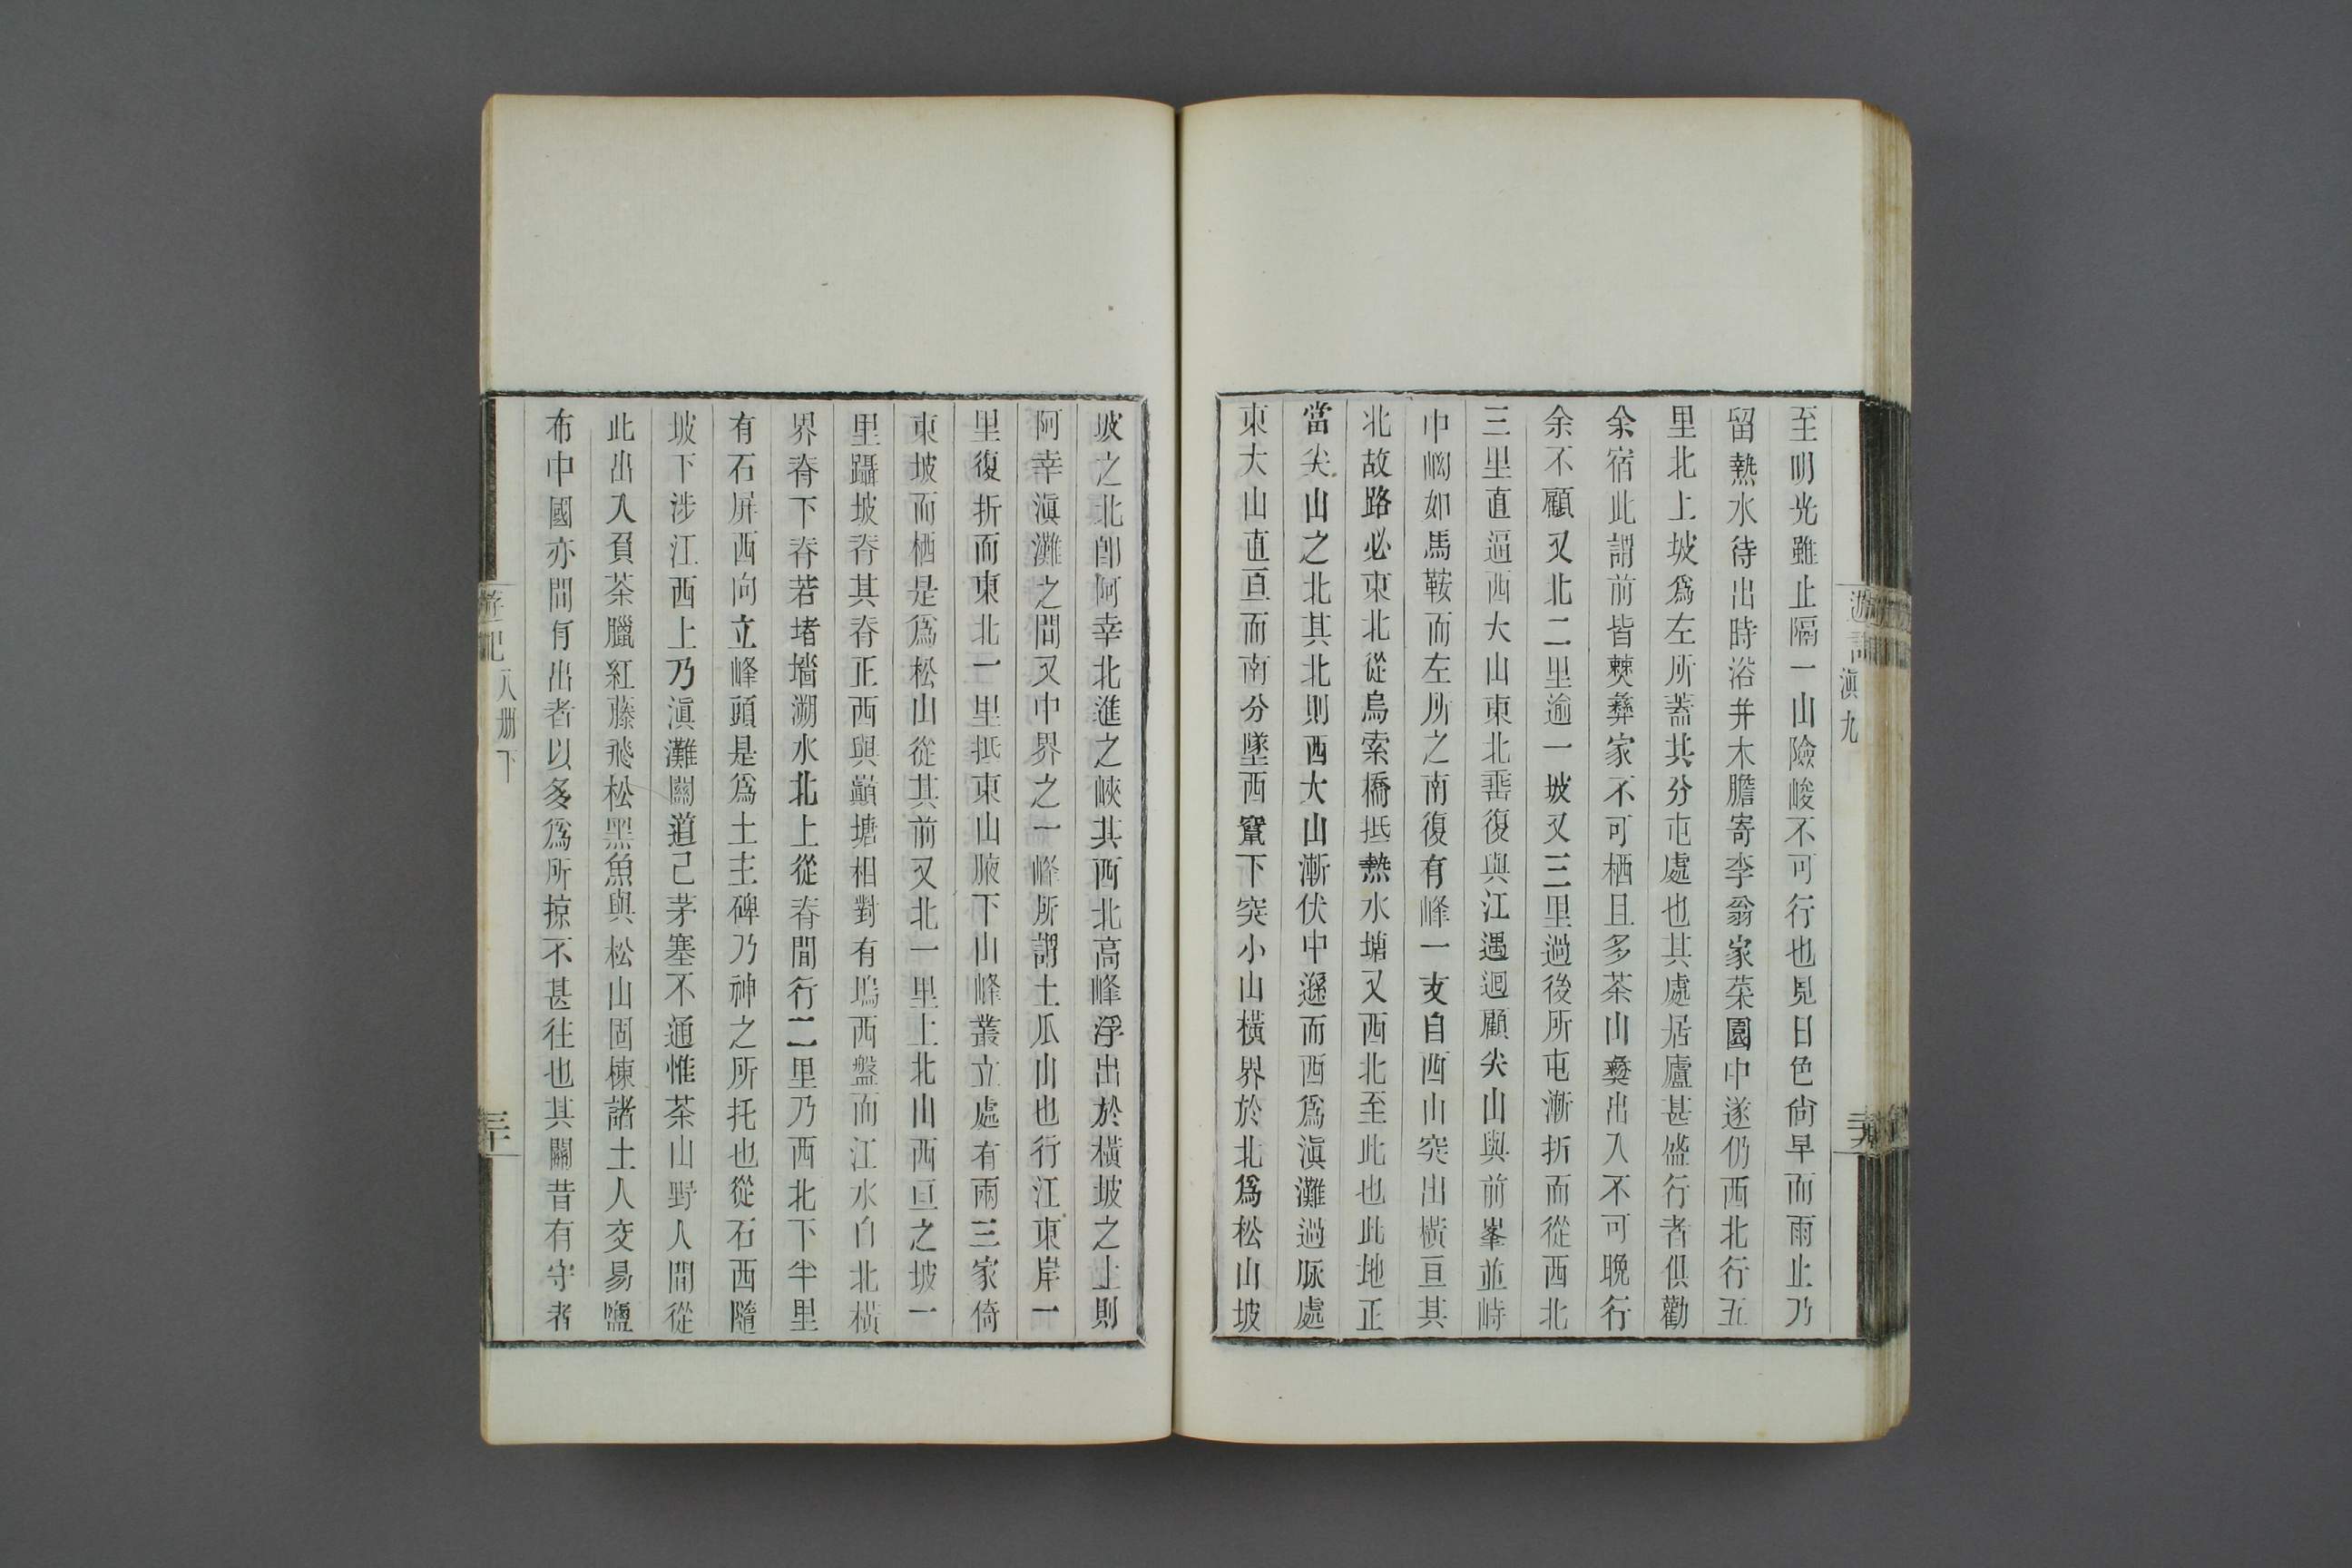 遊記
滇九
至明光雖止隔一山險峻不可行也見日色尙早而雨止乃
留熱水待出時浴幷木膽寄李翁家菜園中遂仍西北行五
里北上坡爲左所蓋其分屯處也其處居廬甚盛行者俱勸
余宿此謂前皆僰彝家不可栖且多茶山彝出入不可晚行
余不顧又北二里逾一坡又三里過後所屯漸折而從西北
三里直逼西大山東北垂復與江遇迴顧尖山與前峯並峙
中峭如馬鞍而左所之南復有峰一支自西山突出橫亘其
北故路必東北從烏索橋抵熱水塘又西北至此也此地正
當尖山之北其北則西大山漸伏中遜而西爲滇灘過脈處
東大山直亘而南分墜西竄下突小山橫界於北爲松山坡
坡之北卽阿幸北進之峽其西北高峰浮出於橫坡之上則
阿幸滇灘之間又中界之一峰所謂土瓜山也行江東岸一
里復折而東北一里抵東山腋下山峰叢立處有兩三家倚
東坡而栖是爲松山從其前又北一里上北山西亘之坡一
里躡坡脊其脊正西與巔塘相對有塢西盤而江水自北橫
界脊下脊若堵墻溯水北上從脊間行二里乃西北下半里
有石屏西向立峰頭是爲土主碑乃神之所托也從石西隨
坡下涉江西上乃滇灘關道已茅塞不通惟茶山野人間從
此出入負茶臘紅藤飛松黑魚與松山固棟諸土人交易鹽
布中國亦間有出者以多爲所掠不甚往也其關昔有守者
遊記
八册下
三十